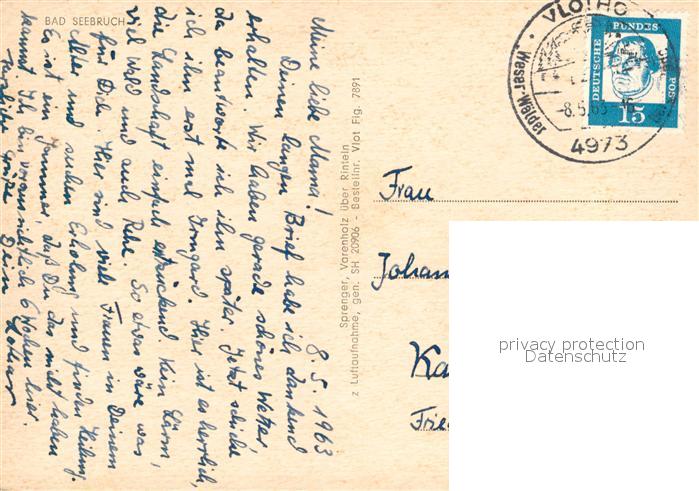 BAD SEEBRUCH
8. 5. 1963
Meine liebe Mama!
Deinen langen Brief habe ich dankend
erhalten. Wir haben gerade schönes Wetter,
da beantworte ich ihn später. Jetzt schicke
ich ihn erst mal Irmgard. Hier ist es herrlich,
die Landschaft einfach entzückend. Kein Lärm,
viel Wald und auch Ruhe. So etwas wäre was
für Dich. Hier sind viele Frauen in Deinem
Alter und suchen Erholung und finden Heilung.
Es ist ein Jammer, daß Du das nicht haben
kannst. Ich bin voraussichtlich 6 Wochen hier.
Herzliche Grüße Dein Lothar
Sprenger, Varenholz über Rinteln
z Luftaufnahme, gen. SH 20906 - Bestellnr. Vlot Flg. 7891
VLOTHO
Weser-Wälder
-8.5.63
4973
DEUTSCHE
BUNDES
POST
15
Frau
Johan
Ka
Frie
privacy protection
Datenschutz